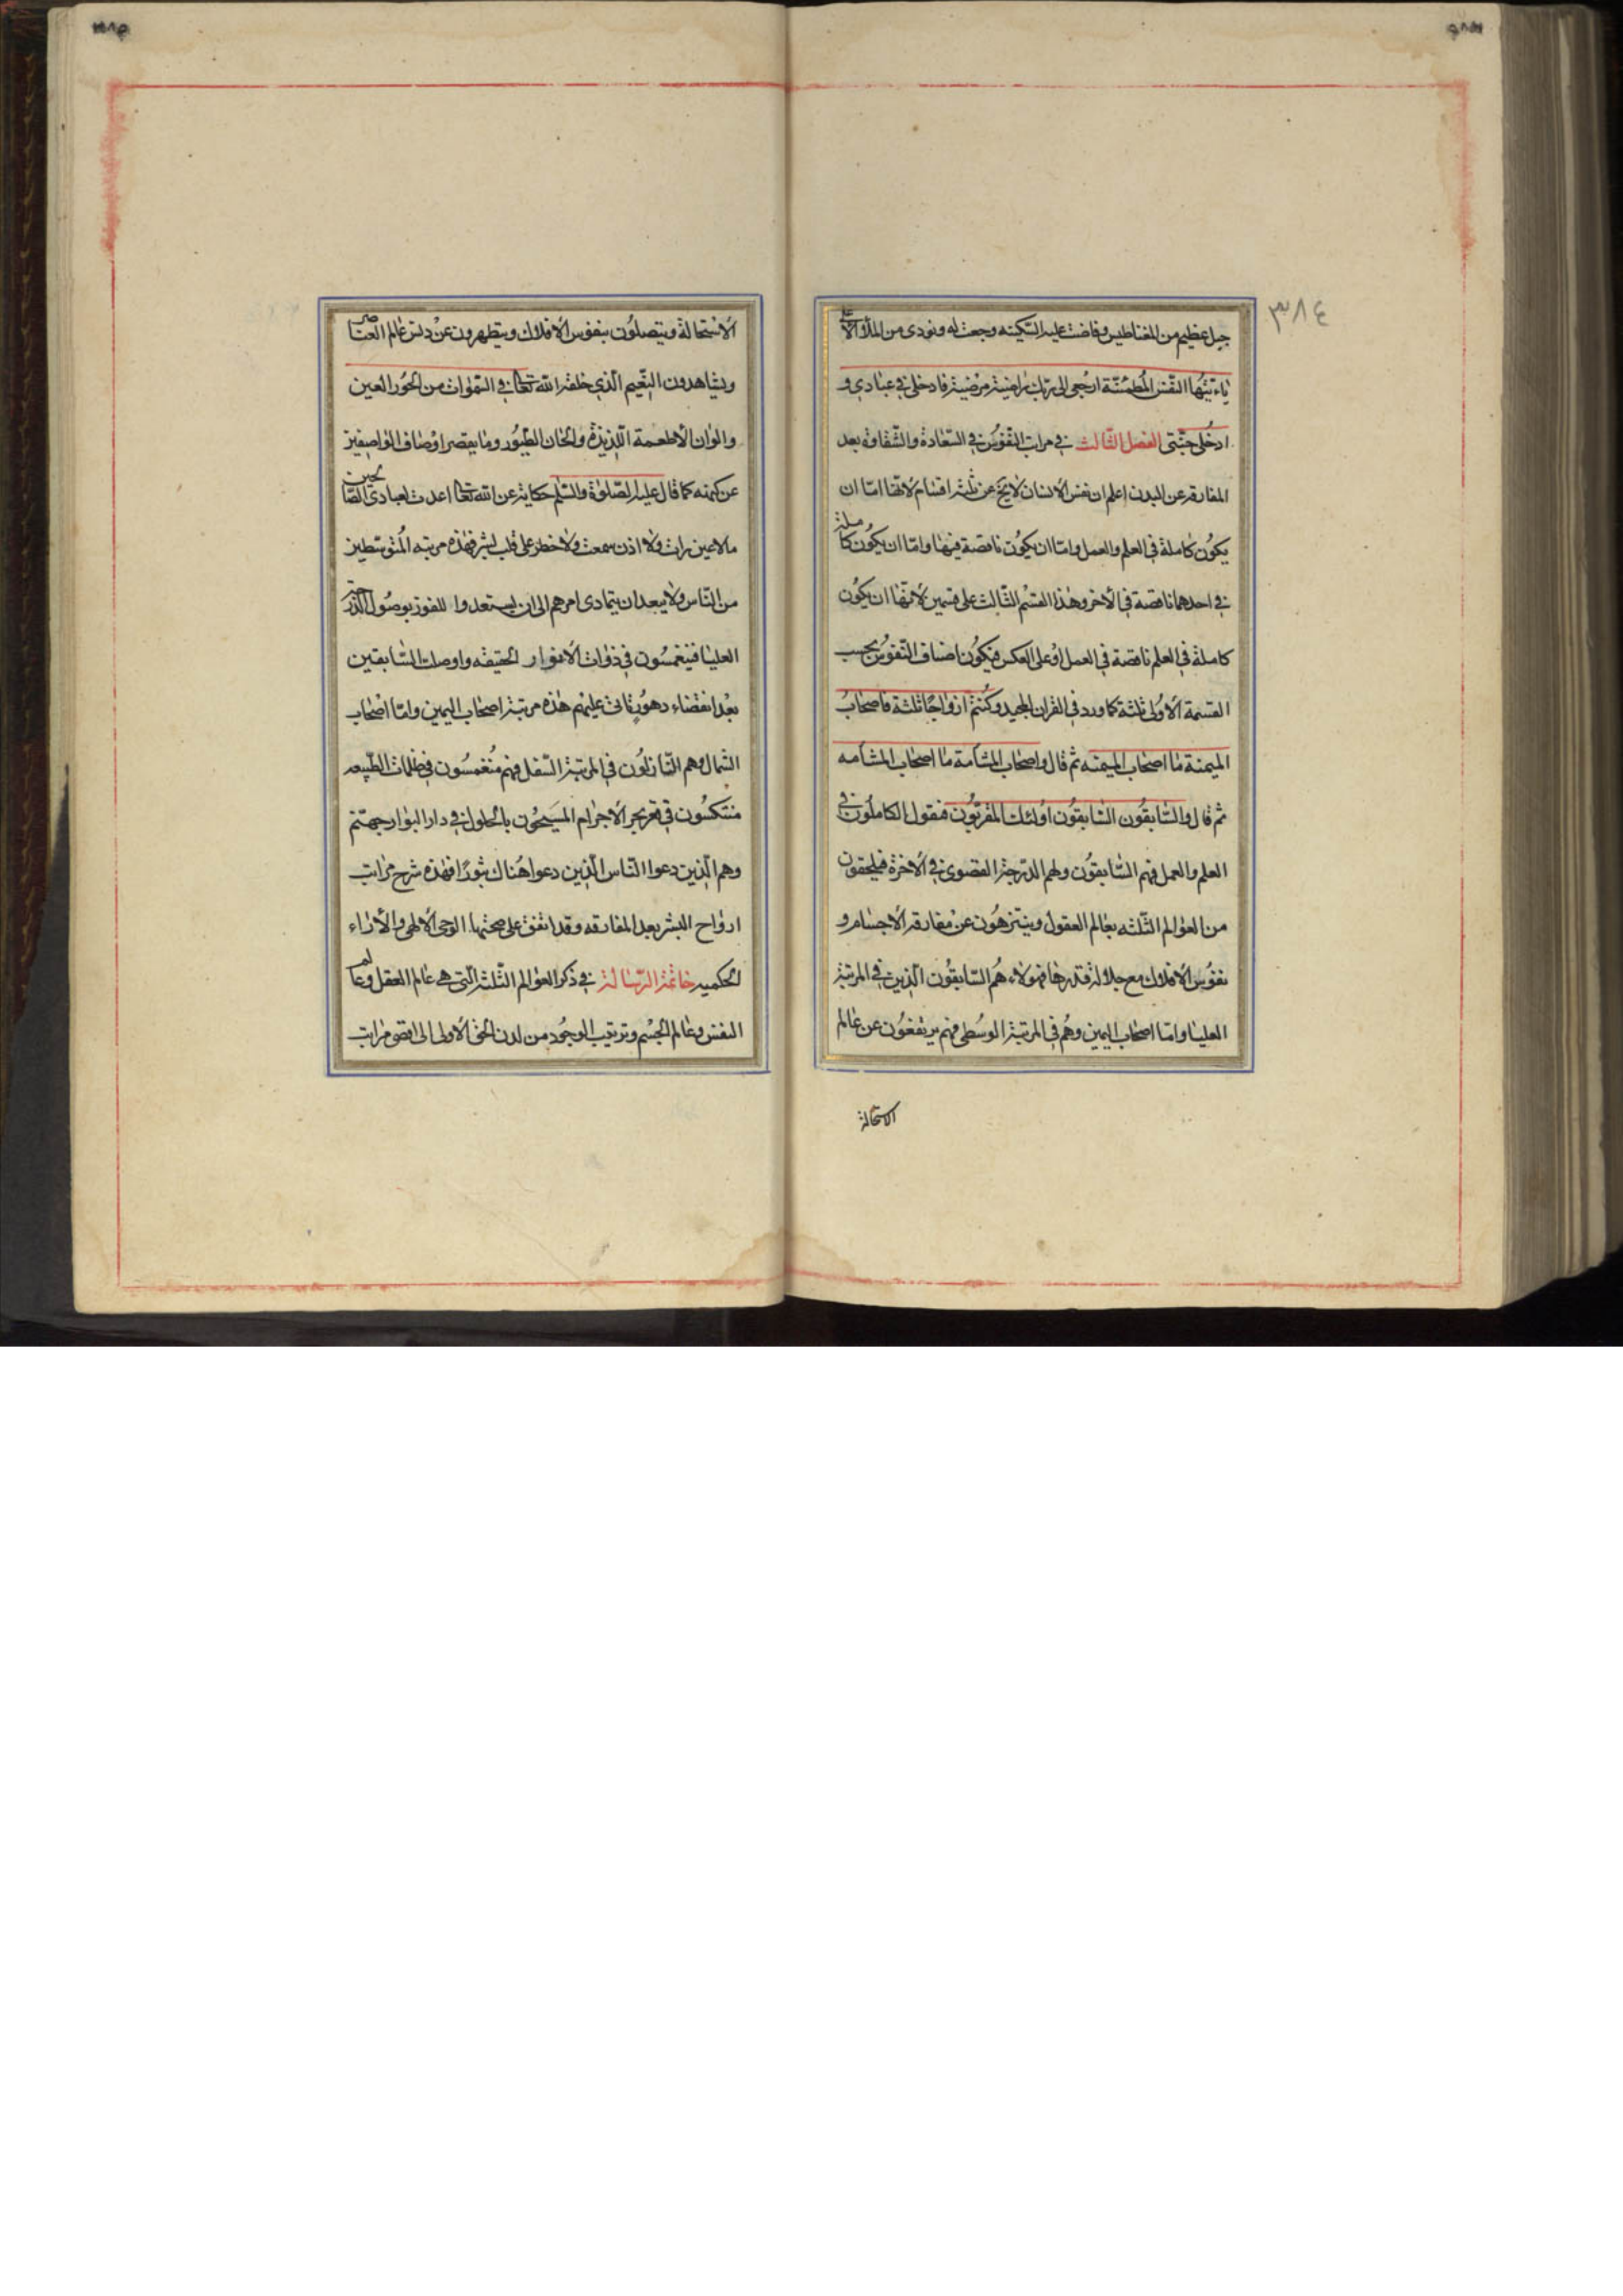 ٣٨٤
جبل عظيم من المغناطيس وفاضت عليه السكينه وحقت له ونودى من الملأ الأعلى
ياءيتها النفس المطمئنة ارجعى الى ربك راضية مرضية فادخلى فى عبادى و
ادخلى جنتى الفصل الثالث فى مراتب النفوس فى السعادة والشقاوة بعد
المفارقه عن البدن اعلم ان نفس الانسان لا يخ عن ثلثه اقسام لانها اما ان
يكون كاملة فى العلم والعمل واما ان يكون ناقصة فيهما واما ان يكون كاملة
فى احدهما ناقصة فى الاخر وهذا القسم الثالث على قسمين لانها ان يكون
كاملة فى العلم ناقصة فى العمل او على العكس فيكون اصناف النفوس بحسب
القسمة الاولى ثلثة كما ورد فى القران المجيد وكنتم ازواجا ثلثة فاصحاب
الميمنة ما اصحاب الميمنه ثم قال واصحاب المشأمة ما اصحاب المشأمه
ثم قال والسابقون السابقون اولئك المقربون فنقول الكاملون فى
العلم والعمل فهم السابقون ولهم الدرجة القصوى فى الاخرة فيلحقون
من العوالم الثلثه بعالم العقول ويتنزهون عن مقارقه الاجسام و
نفوس الافلاك مع جلالة قدرها فهولاء هم السابقون الذين فى المرتبة
العليا واما اصحاب اليمين وهم فى المرتبة الوسطى فهم يرتفعون عن عالم
الاستحالة
الاستحالة ويتصلون بنفوس الافلاك ويتطهرون عن دنس عالم العناصر
ويشاهدون النعيم الذى خلقه الله تعالى فى السموات من الحور العين
والوان الاطعمة اللذيذة والحان الطيور وما يقصر اوصاف الواصفين
عن كنهه كما قال عليه الصلوة والسلم حكاية عن الله تعالى اعدت لعبادى الصالحين
مالا عين رات ولا اذن سمعت ولا خطر على قلب بشر فهذه مرتبه المتوسطين
من الناس ولا يبعد ان يتمادى امرهم الى ان يستعدوا للفوز بوصول الدرجة
العليا فينغمسون فى ذوات الانوار الحقيقه واوصلت السابقين
بعد انقضاء دهور تاتى عليهم هذه مرتبة اصحاب اليمين واما اصحاب
الشمال وهم النازلون فى المرتبة السفلى فهم منغمسون فى ظلمات الطبيعه
منتكسون فى قعر بحر الاجرام بالحلول فى دار البوار جهنم
وهم الذين دعوا الناس الذين دعوا هنالك ثبورا فهذه شرح مراتب
ارواح البشر بعد المفارقه وقد اتفق على صحتها الوحى الالهى والآراء
الحكميه خاتمة الرسالة فى ذكر العوالم الثلثة التى هى عالم العقل وعالم
النفس وعالم الجسم وترتيب الوجود من لدن الحق الاول الى اقصى مراتب